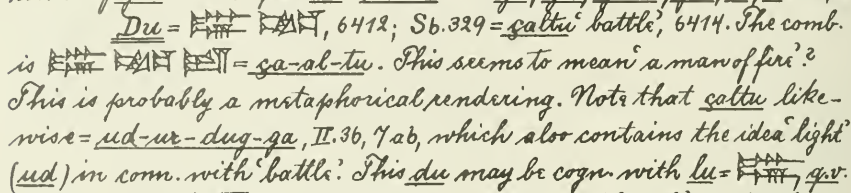 Du = , 6412; Sb. 329 = ṣaltu ‘battle’, 6414. The comb.
is = ṣa-al-tu. This seems to mean ‘a man of fire’?
This is probably a metaphorical rendering. Note that ṣaltu like-
wise = ud-ur-dug-ga, II. 36, 7ab, which also contains the idea ‘light’
(ud) in conn. with ‘battle’. This du may be cogn. with lu = , q.v.